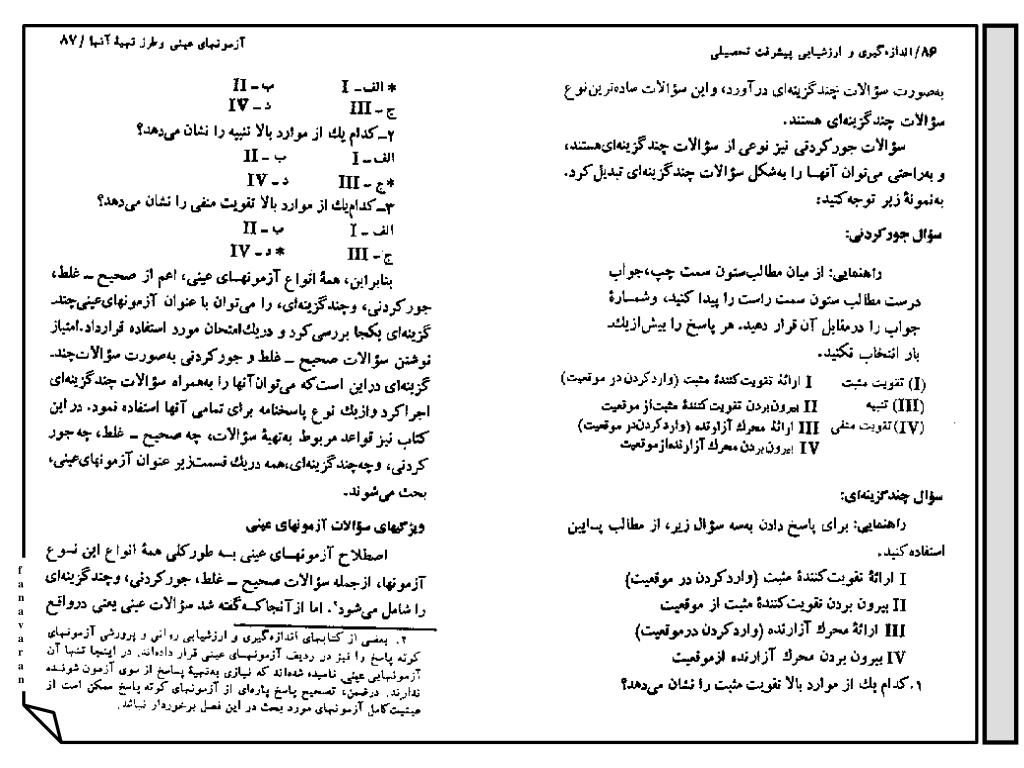 ۸۶/ اندازه‌گیری و ارزشیابی پیشرفت تحصیلی
به‌صورت سؤالات چندگزینه‌ای درآورد، واین سؤالات ساده‌ترین نوع
سؤالات چندگزینه‌ای هستند.
سؤالات جورکردنی نیز نوعی از سؤالات چندگزینه‌ای‌هستند،
و به‌راحتی می‌توان آنهـا را به‌شکل سؤالات چندگزینه‌ای تبدیل کرد.
به‌نمونهٔ زیر توجه کنید:
سؤال جورکردنی:
راهنمایی: از میان مطالب‌ستون سمت چپ، جواب
درست مطالب ستون سمت راست را پیدا کنید، وشمـارهٔ
جواب را درمقابل آن قرار دهید. هر پاسخ را بیش‌ازیك
بار انتخاب نکنید.
(I) تقویت مثبت I ارائهٔ تقویت‌کنندهٔ مثبت (واردکردن در موقعیت)
(III) تنبیه II بیرون‌بردن تقویت‌کنندهٔ مثبت‌از موقعیت
(IV) تقویت منفی III ارائهٔ محرك آزارنده (واردکردن‌در موقعیت)
IV بیرون‌بردن محرك آزارنده‌ازموقعیت
سؤال چندگزینه‌ای:
راهنمایی: برای پاسخ دادن به‌سه سؤال زیر، از مطالب پـایین
استفاده کنید.
I ارائهٔ تقویت‌کنندهٔ مثبت (واردکردن در موقعیت)
II بیرون بردن تقویت‌کنندهٔ مثبت از موقعیت
III ارائهٔ محرك آزارنده (واردکردن درموقعیت)
IV بیرون بردن محرك آزارنده ازموقعیت
۱. کدام یك از موارد بالا تقویت مثبت را نشان می‌دهد؟
آزمونهای عینی وطرز تهیهٔ آنها / ۸۷
* الف ـ I ب ـ II
ج ـ III د ـ IV
۲ـ کدام یك از موارد بالا تنبیه را نشان می‌دهد؟
الف ـ I ب ـ II
*ج ـ III د ـ IV
۳ـ کدام‌یك از موارد بالا تقویت منفی را نشان می‌دهد؟
الف ـ I ب ـ II
ج ـ III * د ـ IV
بنابراین، همهٔ انواع آزمونهـای عینی، اعم از صحیح ـ غلط،
جورکردنی، وچندگزینه‌ای، را می‌توان با عنوان آزمونهای‌عینی‌چند‌ـ
گزینه‌ای یکجا بررسی‌کرد و دریك‌امتحان مورد استفاده قرارداد. امتیاز
نوشتن سؤالات صحیح ـ غلط و جورکردنی به‌صورت سؤالات‌چندـ
گزینه‌ای دراین است‌که می‌توان‌آنها را به‌همراه سؤالات چندگزینه‌ای
اجراکرد وازیك نوع پاسخنامه برای تمامی آنها استفاده نمود. در این
کتاب نیز قواعد مربوط به‌تهیهٔ سؤالات، چه صحیح ـ غلط، چه جور
کردنی، وچه‌چندگزینه‌ای،همه دریك قسمت‌زیر عنوان آزمونهای‌عینی،
بحث می‌شوند.
ویژگیهای سؤالات آزمونهای عینی
اصطلاح آزمونهـای عینی بـه طورکلی همهٔ انواع این نـوع
آزمونها، ازجمله سؤالات صحیح ـ غلط، جورکردنی، وچندگزینه‌ای
را شامل می‌شود۲. اما ازآنجاکـه‌گفته شد سؤالات عینی یعنی درواقع
۲. بعضی از کتابهای اندازه‌گیری و ارزشیابی روانی و پرورشی آزمونهای
کوته پاسخ را نیز در ردیف آزمونهـای عینی قرار داده‌اند. در اینجا تنها آن
آزمونهایی عینی نامیده شده‌اند که نیازی به‌تهیهٔ پـاسخ از سوی آزمون شونـده
ندارند. درضمن، تصحیح پاسخ پاره‌ای از آزمونهای کوته پاسخ ممکن است از
عینیت‌کامل آزمونهای مورد بحث در این فصل برخوردار نباشد.
fanavaran